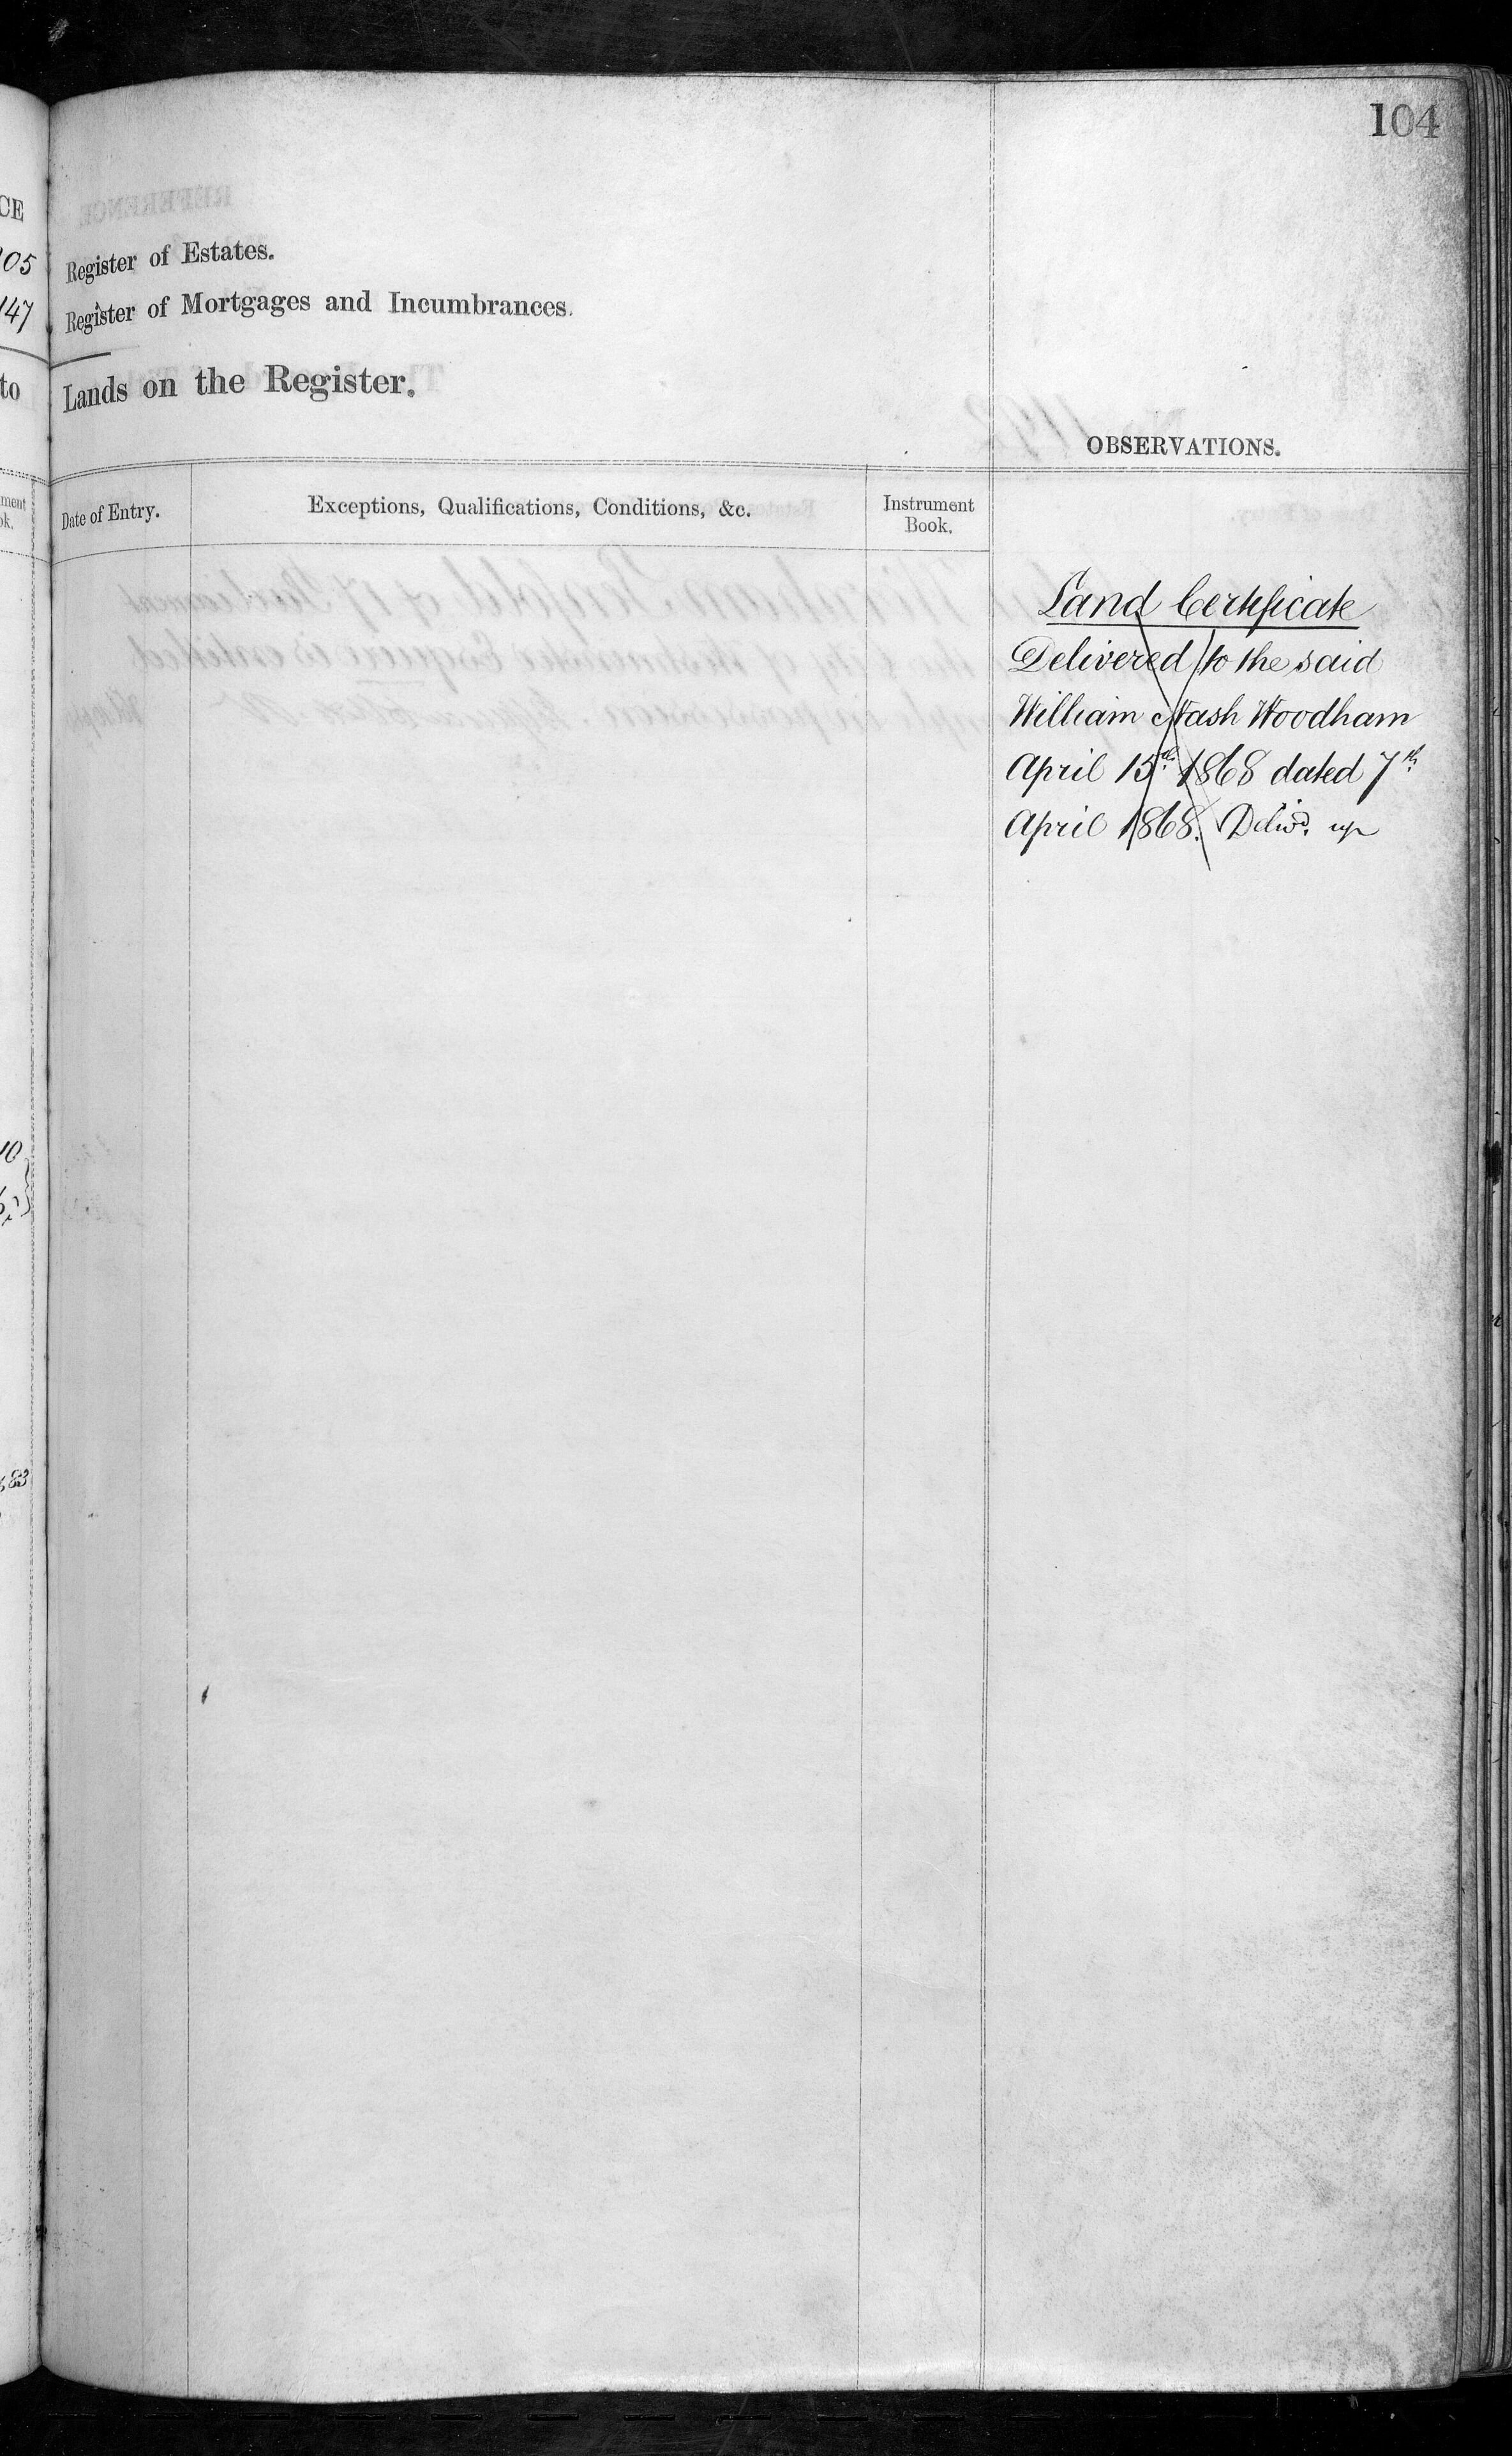 104
CE
105
147
to
Register of Estates.
Register of Mortgages and Incumbrances.
Lands on the Register.
OBSERVATIONS.
Date of Entry.
Exceptions, Qualifications, Conditions, &c.
Instrument
Book.
Land Certificate
Delivered to the said
William Nash Woodham
April 15th 1868 dated 7th
April 1868. Delivd. up
10
83